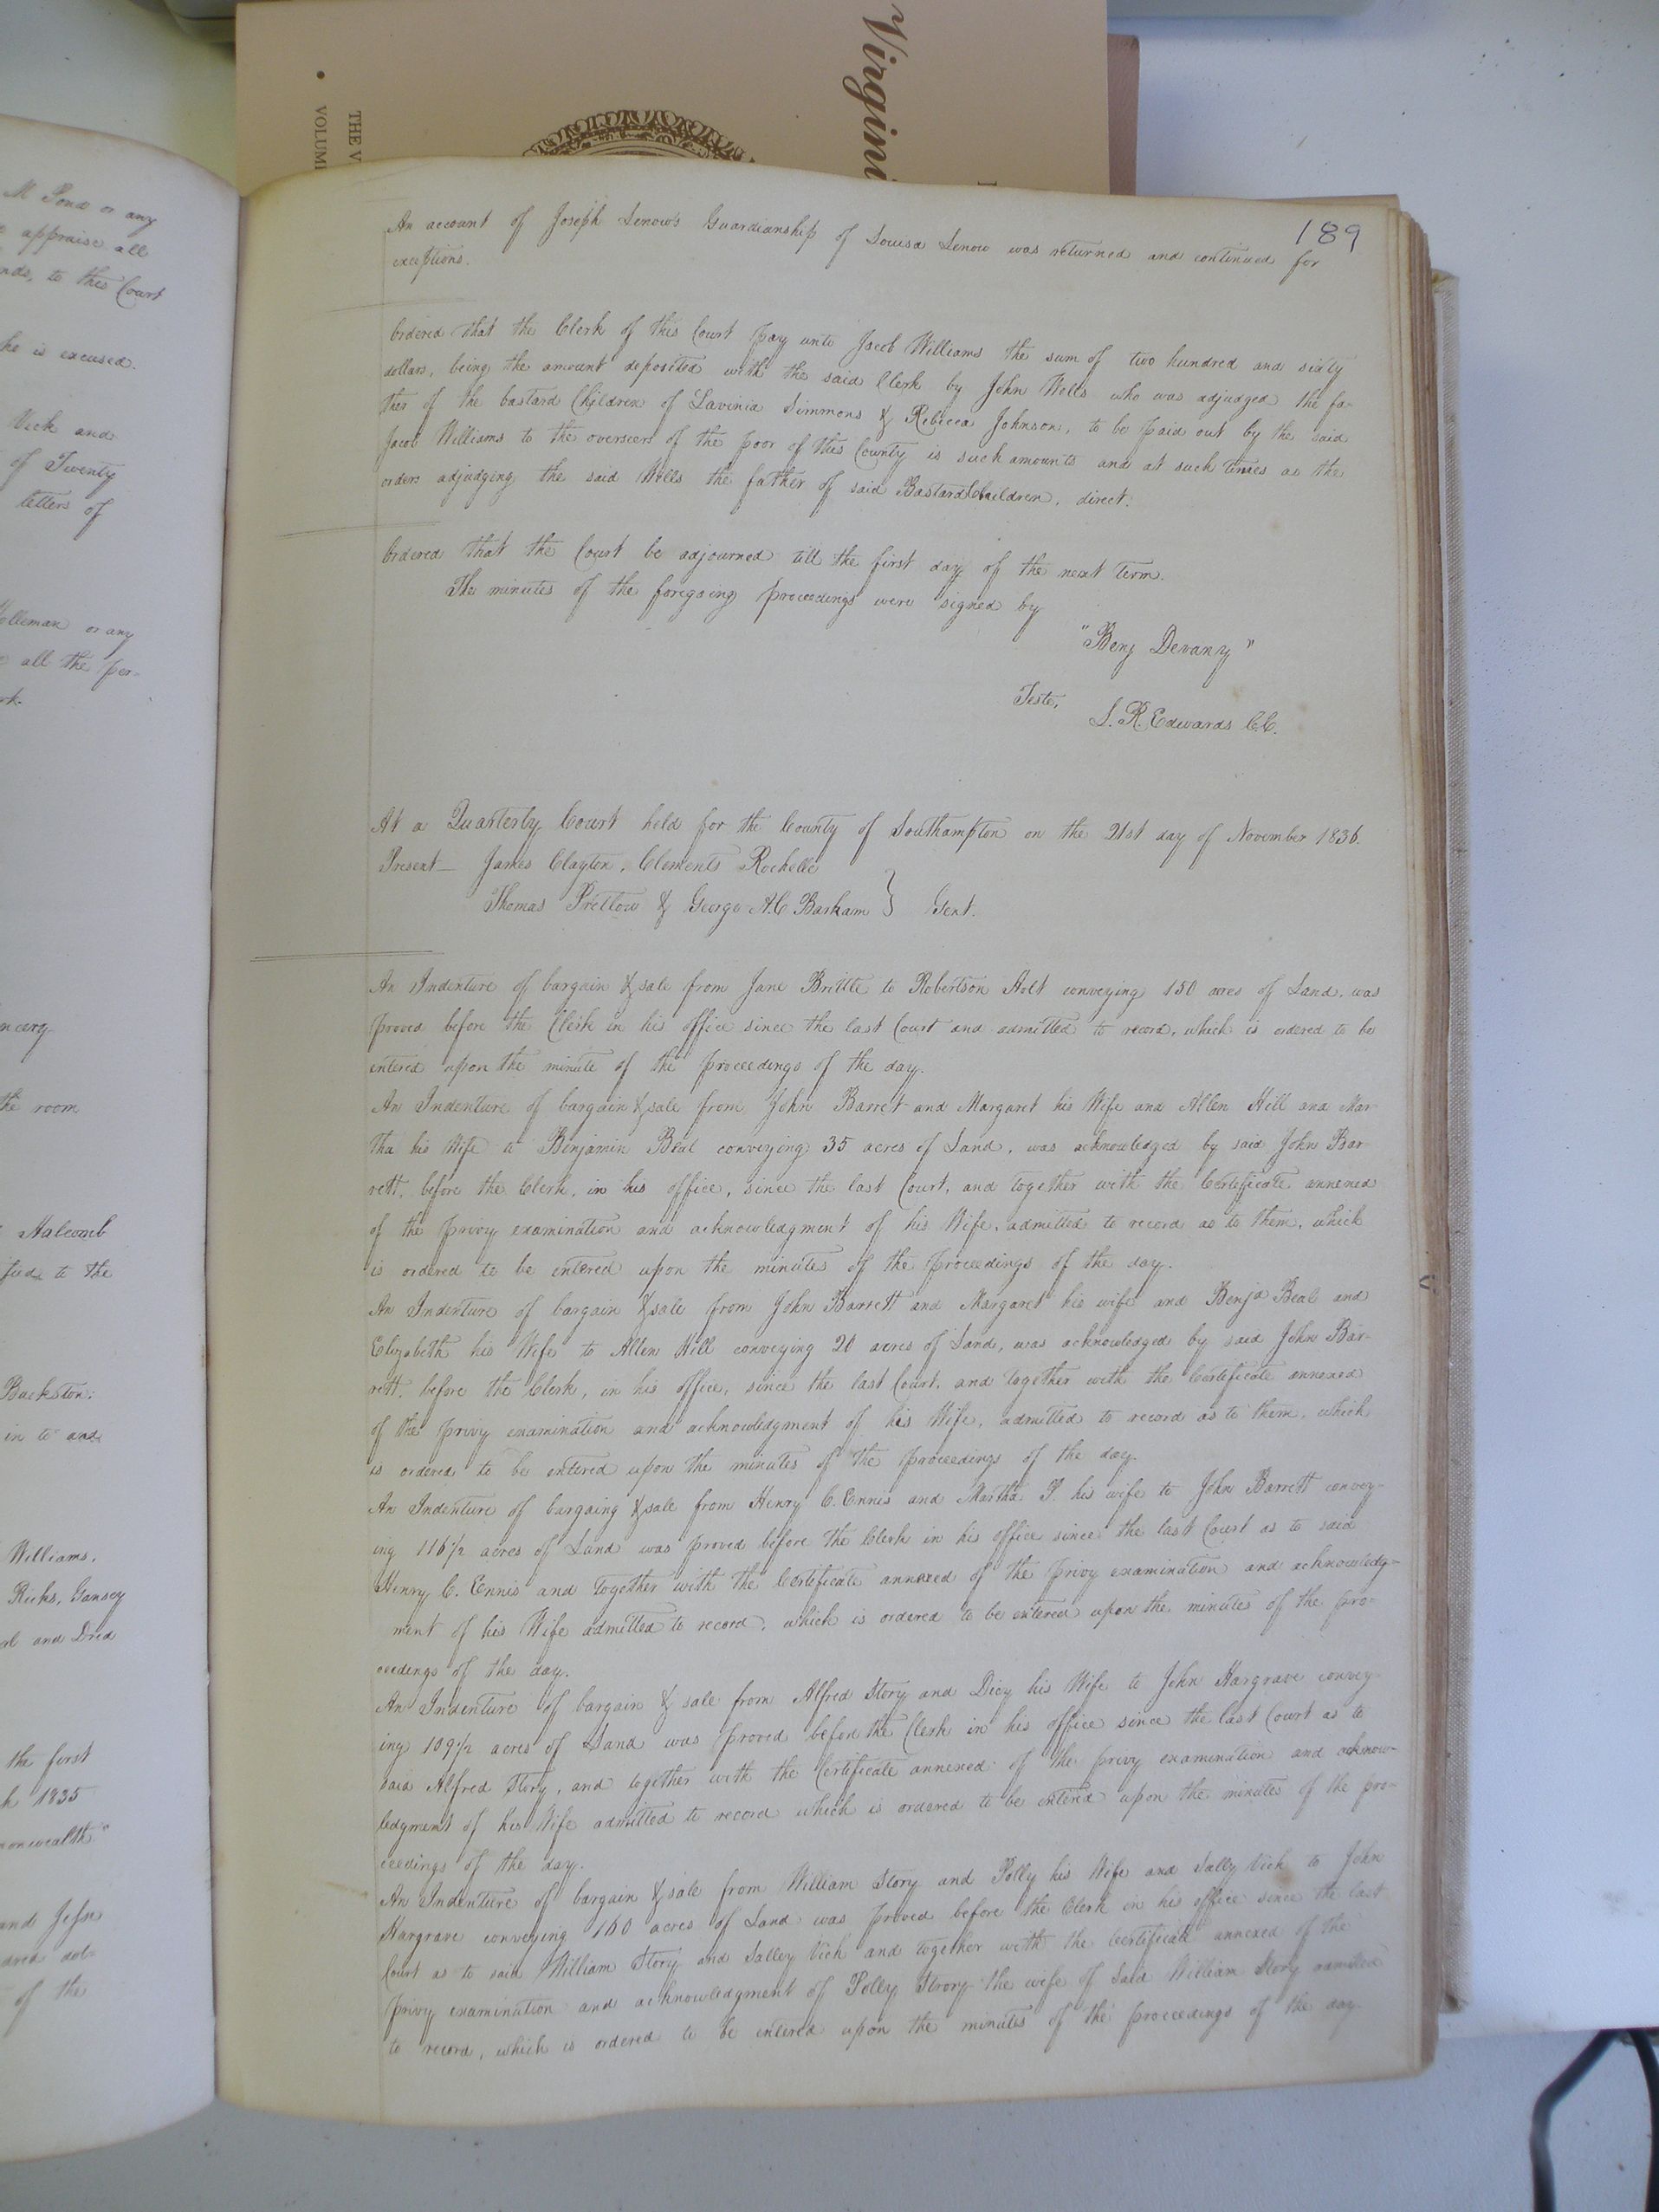 Virgini
THE V
VOLUM
M Pond or any
appraise all
nds, to this Court
he is excused.
Vick and
of Twenty
letters of
olleman or any
all the per-
rk.
ncery
the room
Halcomb
fied to the
Buckston.
in to and
Williams.
Ricks, Gansey
and Dred
the first
h 1835
monwealth"
and Jesse
dred dol-
of the
189
An account of Joseph Lenow's Guardianship of Louisa Lenow was returned and continued for
exceptions.
Ordered that the Clerk of this Court pay unto Jacob Williams the sum of two hundred and sixty
dollars, being the amount deposited with the said Clerk by John Wells who was adjudged the fa-
ther of the bastard Children of Lavinia Simmons & Rebecca Johnson, to be paid out by the said
Jacob Williams to the overseers of the poor of this County is such amounts and at such times as the
orders adjudging the said Wells the father of said Bastard Children, direct.
Ordered that the Court be adjourned till the first day of the next term.
The minutes of the foregoing proceedings were signed by
"Benj Devany"
Teste,
L. R. Edwards C.C.
At a Quarterly Court held for the County of Southampton on the 21st day of November 1836.
Present— James Clayton, Clements Rochelle
Thomas Pretlow & George A.C Barham } Gent.
An Indenture of bargain & sale from Jane Brittle to Robertson Holt conveying 150 acres of Land, was
proved before the Clerk in his office since the last Court and admitted to record, which is ordered to be
entered upon the minute of the proceedings of the day.
An Indenture of bargain & sale from John Barret and Margaret his Wife and Allen Hill and Mar-
tha his Wife to Benjamin Beal conveying 35 acres of Land, was acknowledged by said John Bar-
rett, before the Clerk, in his office, since the last Court, and together with the Certificate annexed
of the privy examination and acknowledgment of his Wife, admitted to record as to them, which
is ordered to be entered upon the minutes of the proceedings of the day.
An Indenture of bargain & sale from John Barrett and Margaret his wife and Benja Beal and
Elizabeth his Wife to Allen Hill conveying 20 acres of Land, was acknowledged by said John Bar-
rett, before the Clerk, in his office, since the last Court, and together with the Certificate annexed
of the privy examination and acknowledgment of his Wife, admitted to record as to them, which
is ordered to be entered upon the minutes of the proceedings of the day
An Indenture of bargaing & sale from Henry C. Ennis and Martha P. his wife to John Barrett convey-
ing 116½ acres of Land was proved before the Clerk in his office since the last Court as to said
Henry C. Ennis and together with the Certificate annexed of the privy examination and acknowledg-
ment of his Wife admitted to record, which is ordered to be entered upon the minutes of the pro-
ceedings of the day.
An Indenture of bargain & sale from Alfred Story and Dicy his Wife to John Hargrave convey-
ing 109½ acres of Land was proved before the Clerk in his office since the last Court as to
said Alfred Story, and together with the Certificate annexed of the privy examination and acknow-
ledgment of his Wife admitted to record which is ordered to be entered upon the minutes of the pro-
ceedings of the day.
An Indenture of bargain & sale from William Story and Polly his Wife and Sally Vick to John
Hargrave conveying 160 acres of Land was proved before the Clerk in his office since the last
Court as to said William Story and Salley Vick and together with the Certificate annexed of the
privy examination and acknowledgment of Polly Strory the wife of Said William Story admitted
to record, which is ordered to be entered upon the minutes of the proceedings of the day.